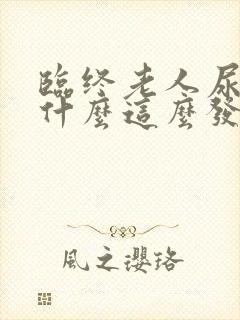 臨终老人尿
什麼這麼發
風之瓔珞